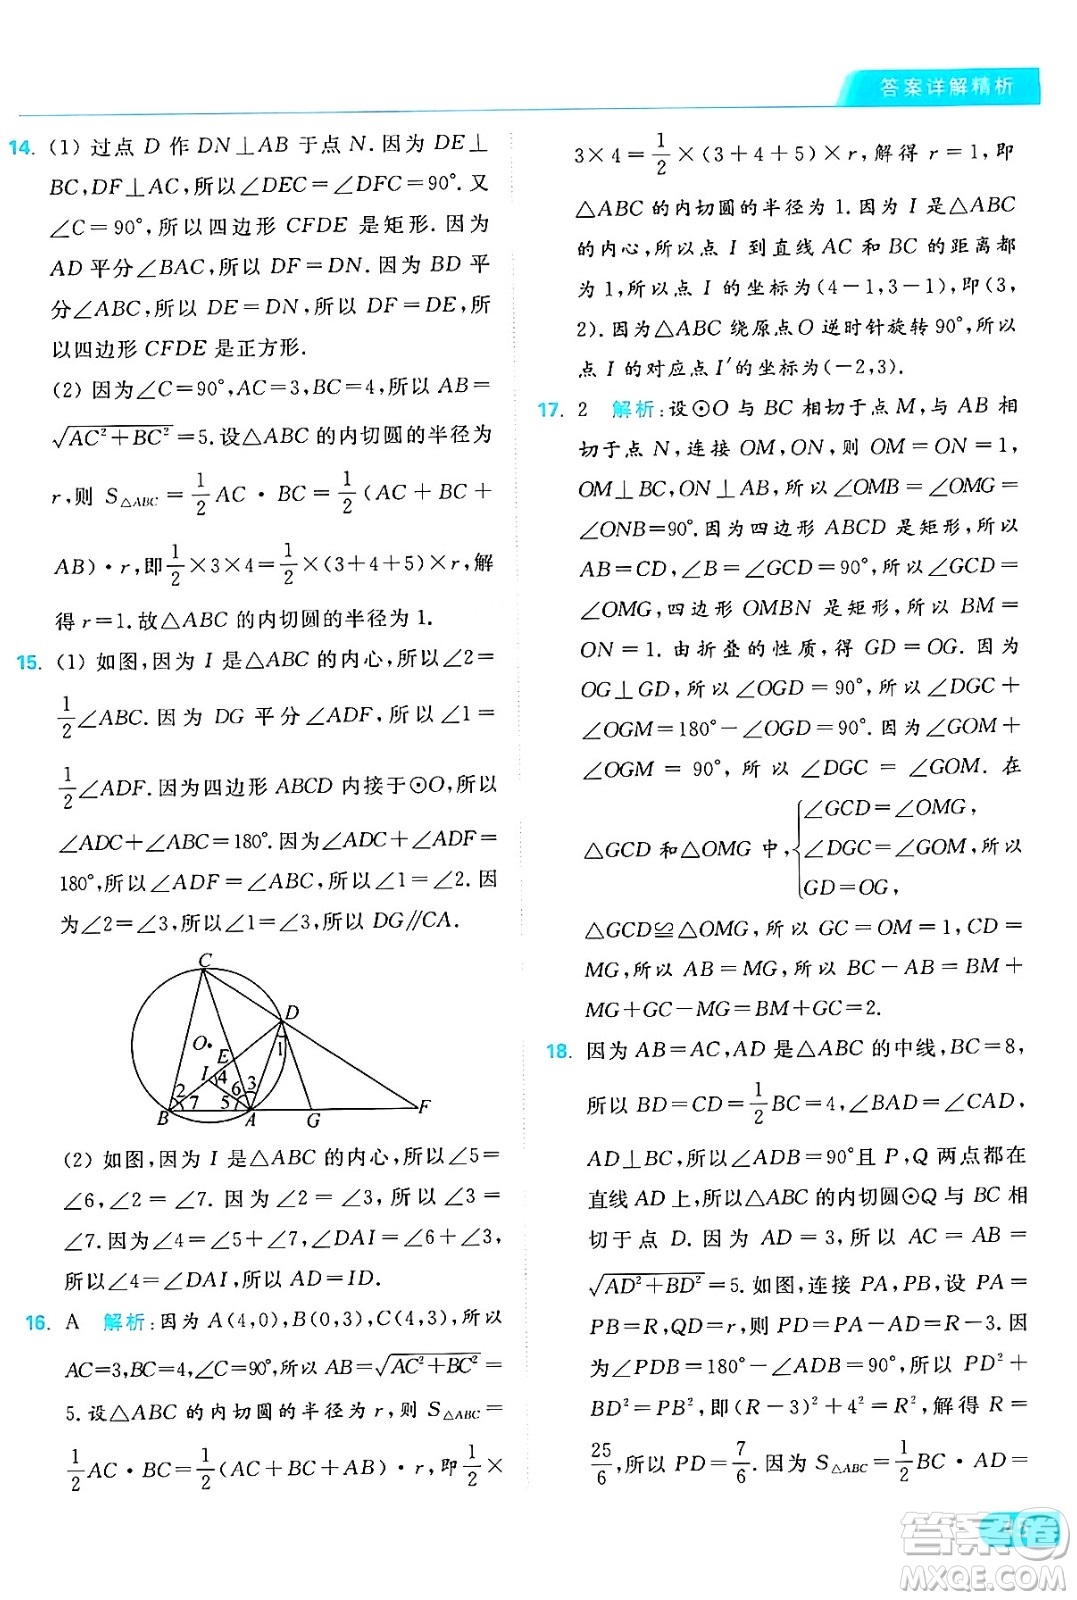 答案详解精析
14. (1) 过点 D 作 DN⊥AB 于点 N. 因为 DE⊥
BC,DF⊥AC,所以∠DEC=∠DFC=90°.又
∠C=90°,所以四边形 CFDE 是矩形.因为
AD 平分∠BAC,所以 DF=DN.因为 BD 平
分∠ABC,所以 DE=DN,所以 DF=DE,所
以四边形 CFDE 是正方形.
(2) 因为∠C=90°,AC=3,BC=4,所以 AB=
√(AC²+BC²)=5.设△ABC 的内切圆的半径为
r,则 S△ABC=1/2 AC·BC=1/2(AC+BC+
AB)·r,即1/2×3×4=1/2×(3+4+5)×r,解
得 r=1.故△ABC 的内切圆的半径为 1.
15. (1) 如图,因为 I 是△ABC 的内心,所以∠2=
1/2∠ABC.因为 DG 平分∠ADF,所以∠1=
1/2∠ADF.因为四边形 ABCD 内接于⊙O,所以
∠ADC+∠ABC=180°.因为∠ADC+∠ADF=
180°,所以∠ADF=∠ABC,所以∠1=∠2.因
为∠2=∠3,所以∠1=∠3,所以 DG∥CA.
C
D
O
1
E
I
4
2
6
3
7
5
B
A
G
F
(2) 如图,因为 I 是△ABC 的内心,所以∠5=
∠6,∠2=∠7.因为∠2=∠3,所以∠3=
∠7.因为∠4=∠5+∠7,∠DAI=∠6+∠3,
所以∠4=∠DAI,所以 AD=ID.
16. A 解析:因为 A(4,0),B(0,3),C(4,3),所以
AC=3,BC=4,∠C=90°,所以 AB=√(AC²+BC²)=
5.设△ABC 的内切圆的半径为 r,则 S△ABC=
1/2 AC·BC=1/2(AC+BC+AB)·r,即1/2×
3×4=1/2×(3+4+5)×r,解得 r=1,即
△ABC 的内切圆的半径为 1.因为 I 是△ABC
的内心,所以点 I 到直线 AC 和 BC 的距离都
为 1,所以点 I 的坐标为(4-1,3-1),即(3,
2).因为△ABC 绕原点 O 逆时针旋转 90°,所以
点 I 的对应点 I′的坐标为(-2,3).
17. 2 解析:设⊙O 与 BC 相切于点 M,与 AB 相
切于点 N,连接 OM,ON,则 OM=ON=1,
OM⊥BC,ON⊥AB,所以∠OMB=∠OMG=
∠ONB=90°.因为四边形 ABCD 是矩形,所以
AB=CD,∠B=∠GCD=90°,所以∠GCD=
∠OMG,四边形 OMBN 为矩形,所以 BM=
ON=1.由折叠的性质,得 GD=OG.因为
OG⊥GD,所以∠OGD=90°,所以∠DGC+
∠OGM=180°-∠OGD=90°.因为∠GOM+
∠OGM=90°,所以∠DGC=∠GOM.在
△GCD 和△OMG 中,{∠GCD=∠OMG,
∠DGC=∠GOM,所以
GD=OG,
△GCD≌△OMG,所以 GC=OM=1,CD=
MG,所以 AB=MG,所以 BC-AB=BM+
MG+GC-MG=BM+GC=2.
18. 因为 AB=AC,AD 是△ABC 的中线,BC=8,
所以 BD=CD=1/2 BC=4,∠BAD=∠CAD,
AD⊥BC,所以∠ADB=90°且 P,Q 两点都在
直线 AD 上,所以△ABC 的内切圆⊙Q 与 BC 相
切于点 D.因为 AD=3,所以 AC=AB=
√(AD²+BD²)=5.如图,连接 PA,PB,设 PA=
PB=R,QD=r,则 PD=PA-AD=R-3.因
为∠PDB=180°-∠ADB=90°,所以 PD²+
BD²=PB²,即(R-3)²+4²=R²,解得 R=
25/6,所以 PD=7/6.因为 S△ABC=1/2 BC·AD=
答案圈
MXQE.COM